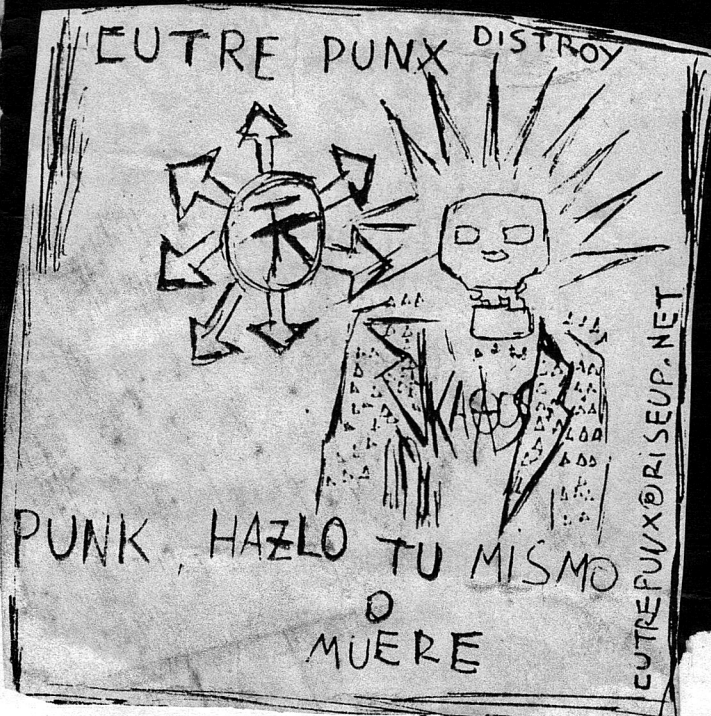 CUTRE PUNX DISTROY
KAOS
PUNK, HAZLO TU MISMO
O
MUERE
CUTREPUNX@RISEUP.NET